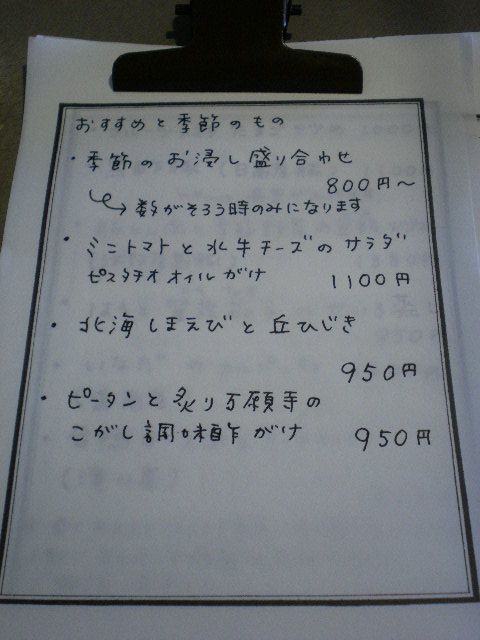 おすすめと季節のもの
・季節のお浸し盛り合わせ
800円～
数がそろう時のみになります
・ミニトマトと水牛チーズのサラダ
ピスタチオオイルがけ 1100円
・北海しまえびと丘ひじき
950円
・ピータンと炙り万願寺の
こがし調味酢がけ 950円